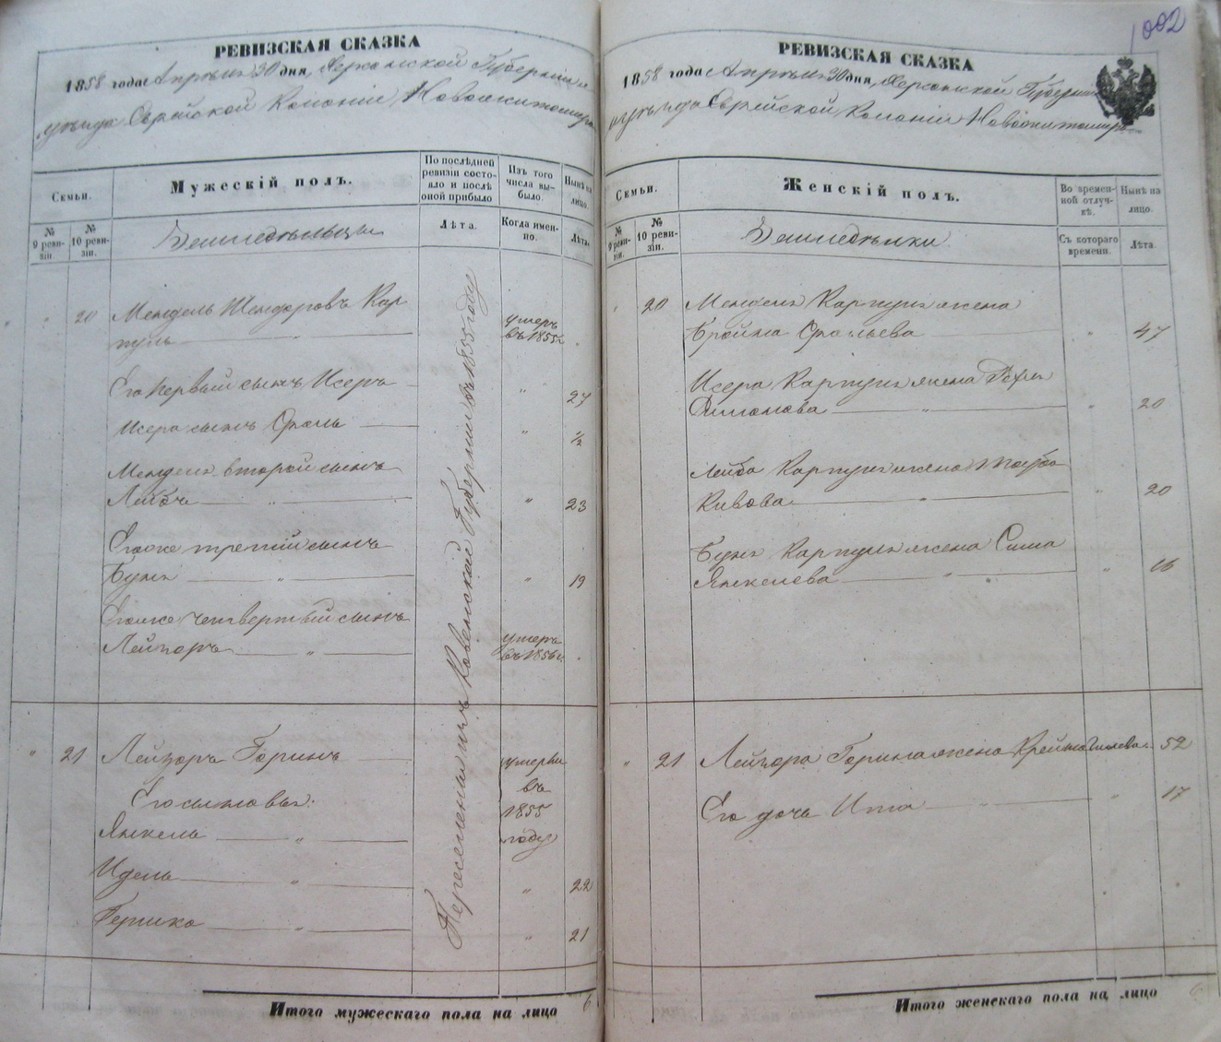 РЕВИЗСКАЯ СКАЗКА
1858 года Апреля 30 дня, Херсонской Губерніи и
уѣзда Еврейской Колоніи Новожитомира
Семьи.
Мужескій полъ.
По послѣдней ревизіи состояло и послѣ оной прибыло
Изъ того числа выбыло.
Нынѣ на лицо.
№ 9 ревизіи.
№ 10 ревизіи.
Земледѣльцы
Лѣта.
Когда именно.
Лѣта.
20 Мендель Шендоровъ Кар
пулъ " умеръ въ 1855 г.
Его первый сынъ Исеръ " 27
Исера сынъ Фроль " ½
Менделя второй сынъ
Лейба " " 23
Его же третій сынъ
Бунъ " " 19
Его же четвертый сынъ
Лейзоръ " умеръ въ 1856 г.
Переселены изъ Ковенской Губерніи въ 1855 году
" 21 Лейзоръ Горинъ умерли
Его сыновья: въ
1855
Янкель " году
Идель " " 22
Гершко " " 21
Итого мужескаго пола на лицо 6
1002
РЕВИЗСКАЯ СКАЗКА
1858 года Апреля 30 дня, Херсонской Губерніи
и уѣзда Еврейской Колоніи Новожитомира
Семьи.
Женскій полъ.
Во временной отлучкѣ.
Нынѣ на лицо.
№ 9 ревизіи.
№ 10 ревизіи.
Земледѣлки
Съ котораго времени.
Лѣта.
20 Менделя Карпула жена
Бройна Фролева " 47
Исера Карпула жена
" " 20
Лейба Карпула жена Тауба
Кивова " " 20
Буна Карпула жена Сима
Янкелева " " 16
" 21 Лейзора Горина жена Крейна 52
Его дочь Ита " 17
Итого женскаго пола на лицо 6